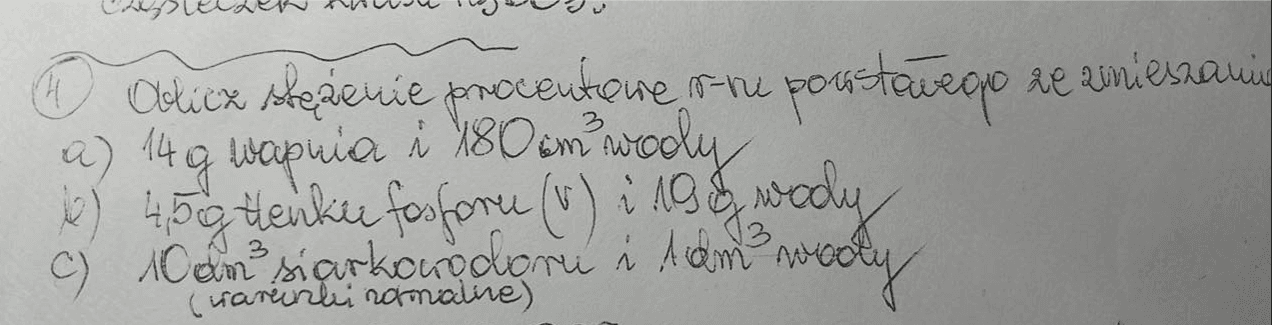 4 Oblicz stężenie procentowe r-ru powstałego ze zmieszania
a) 14g wapnia i 180cm³ wody
b) 4,5g tlenku fosforu (V) i 19g wody
c) 10dm³ siarkowodoru i 1dm³ wody
(warunki normalne)